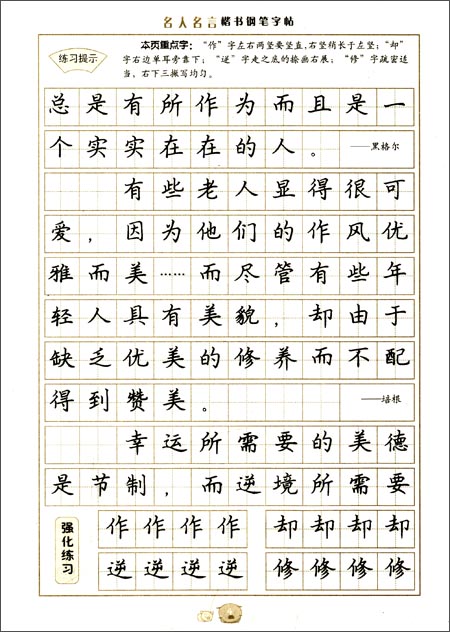 名人名言楷书钢笔字帖
练习提示
本页重点字：“作”字左右两竖要竖直，右竖稍长于左竖；“却”
字右边单耳旁靠下；“逆”字走之底的捺画右展；“修”字疏密适
当、右下三撇写均匀。
总是有所作为而且是一
个实实在在的人。 ——黑格尔
有些老人显得很可
爱，因为他们的作风优
雅而美……而尽管有些年
轻人具有美貌，却由于
缺乏优美的修养而不配
得到赞美。 ——培根
幸运所需要的美德
是节制，而逆境所需要
强化练习
作作作作 却却却却
逆逆逆逆 修修修修